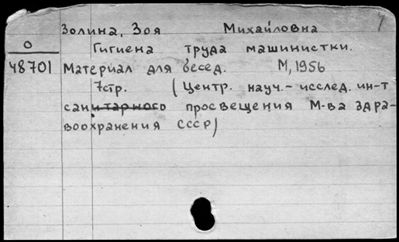 Золина, Зоя Михайловна
О Гигиена труда машинистки.
48701 Материал для бесед. М, 1956
7стр. (Центр. науч.- исслед. ин-т
санитарного просвещения М-ва здра-
воохранения СССР)